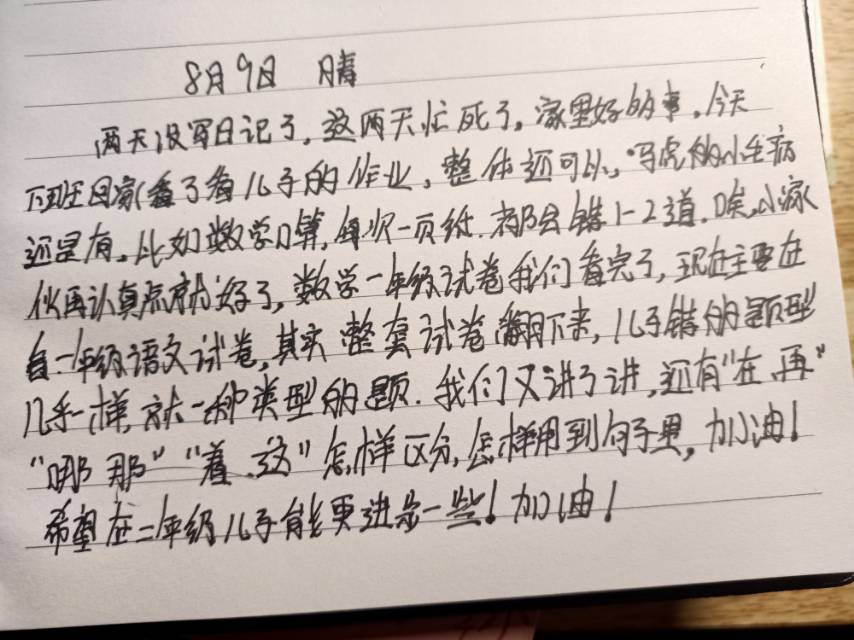 8月9日 晴
两天没写日记了，这两天忙死了，家里好的事，今天
下班回家看了看儿子的作业，整体还可以，马虎的小毛病
还是有。比如数学口算，每次一页纸，都会错1-2道，唉，小家
伙再认真点就好了，数学一年级试卷我们看完了，现在主要在
看一年级语文试卷，其实整套试卷翻下来，儿子错的题型
几乎一样，就一种类型的题．我们又讲了讲，还有“在、再”
“哪 那”“着、这”怎样区分，怎样用到句子里，加油！
希望在二年级儿子能更进步一些！加油！